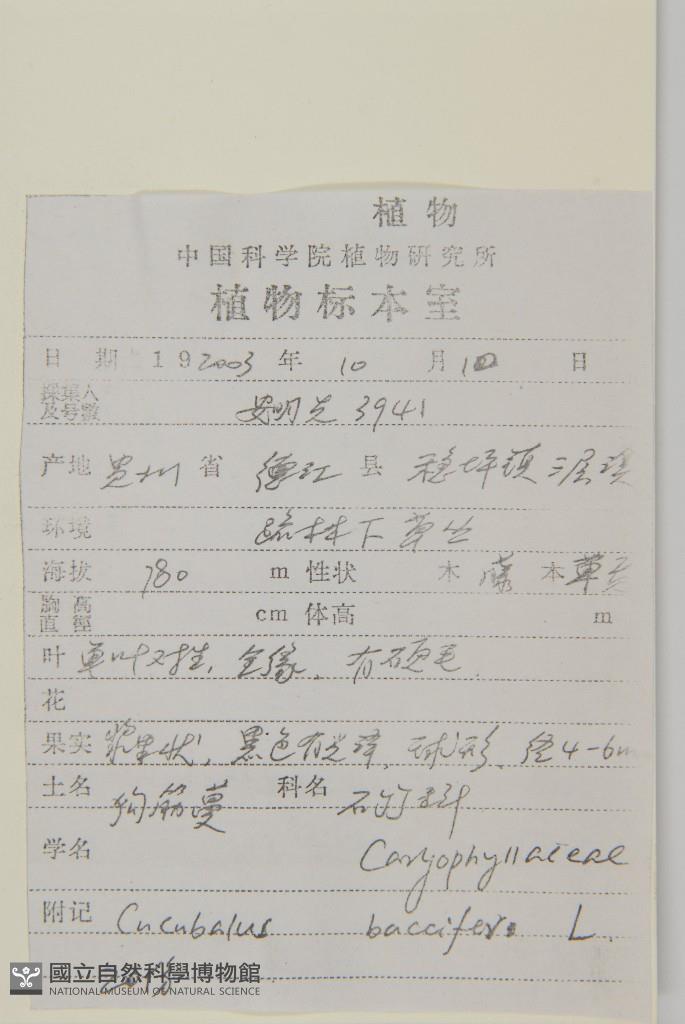 植物
中国科学院植物研究所
植物标本室
日 期 19 2003 年 10 月 10 日
採集人及号数 安明先 3941
产地 贵州 省 德江 县 稳坪镇
环境 疏林下草丛
海拔 780 m 性状 木 藤 本 草
胸高直徑 cm 体高 m
叶 单叶对生, 全缘, 有硬毛.
花
果实 浆果状, 黑色有光泽, 球形, 径4-6m
土名 狗筋蔓 科名 石竹科
学名 Caryophyllaceae
附记 Cucubalus baccifera L.
國立自然科學博物館
NATIONAL MUSEUM OF NATURAL SCIENCE